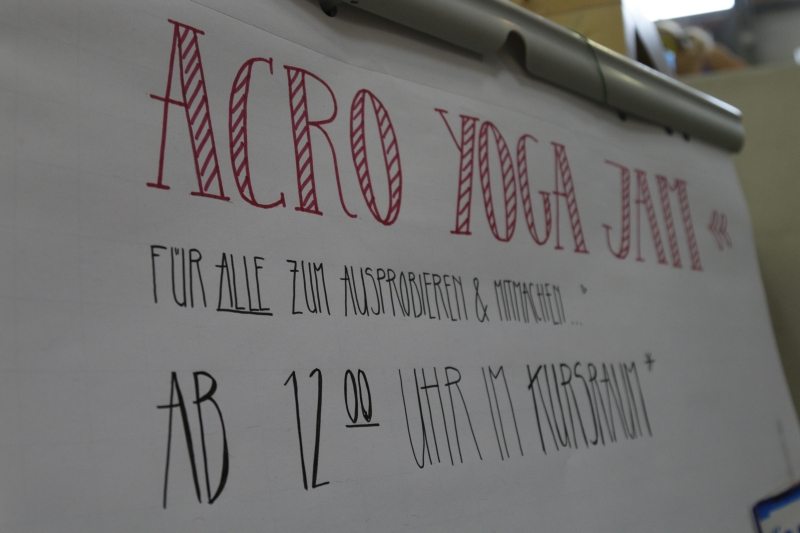 ACRO YOGA JAM «
FÜR ALLE ZUM AUSPROBIEREN & MITMACHEN ...
AB 12 00 UHR IM KURSRAUM*